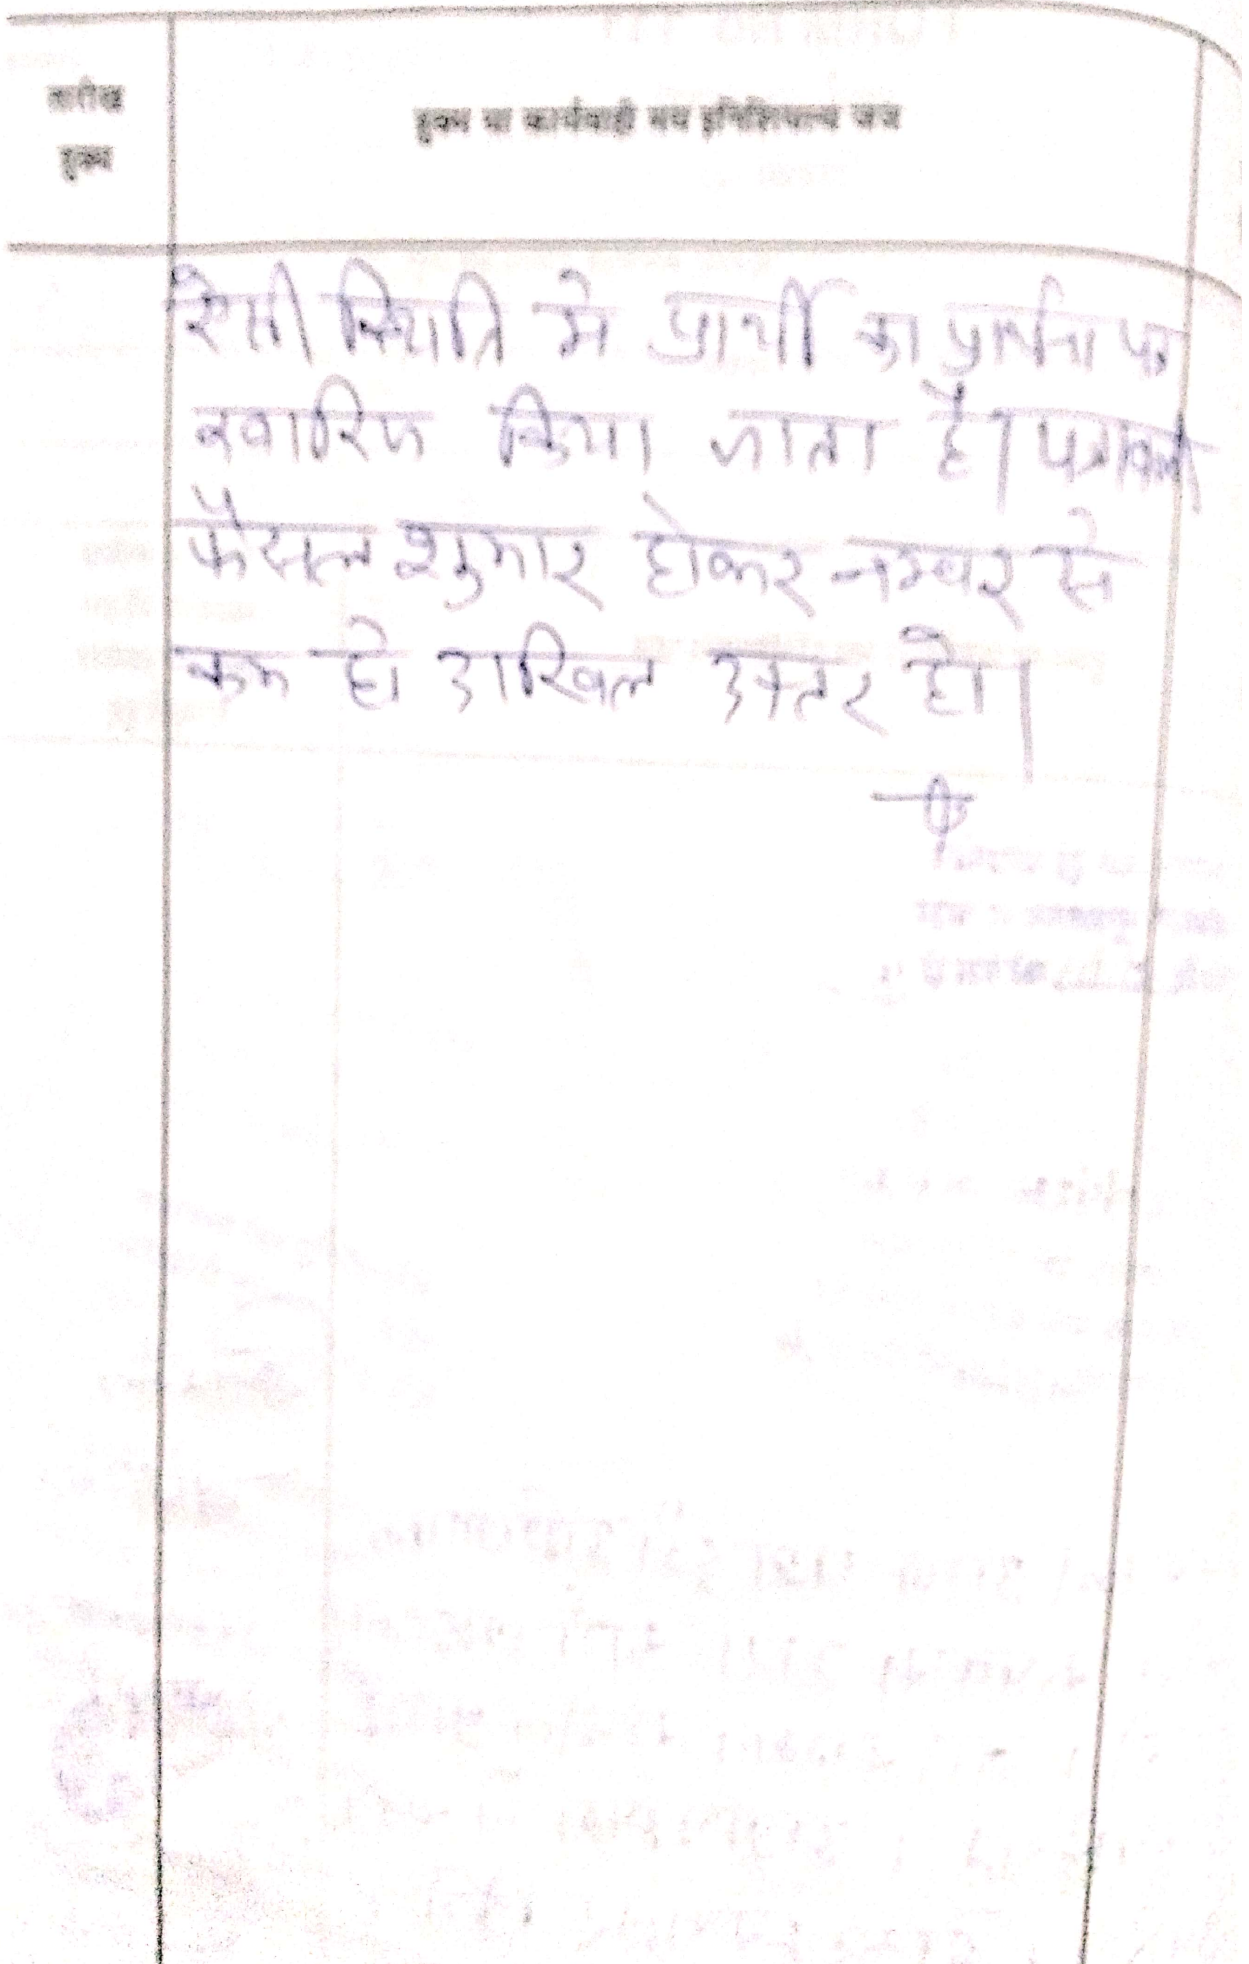 तारीख
हुक्म
हुक्म या कार्यवाही मय इनिशियल्स जज
ऐसी स्थिति मे प्रार्थी का प्रार्थना पत्र
खारिज किया जाता है। पत्रावली
फैसल शुमार होकर नम्बर से
कम हो दाखिल दफ्तर हो।